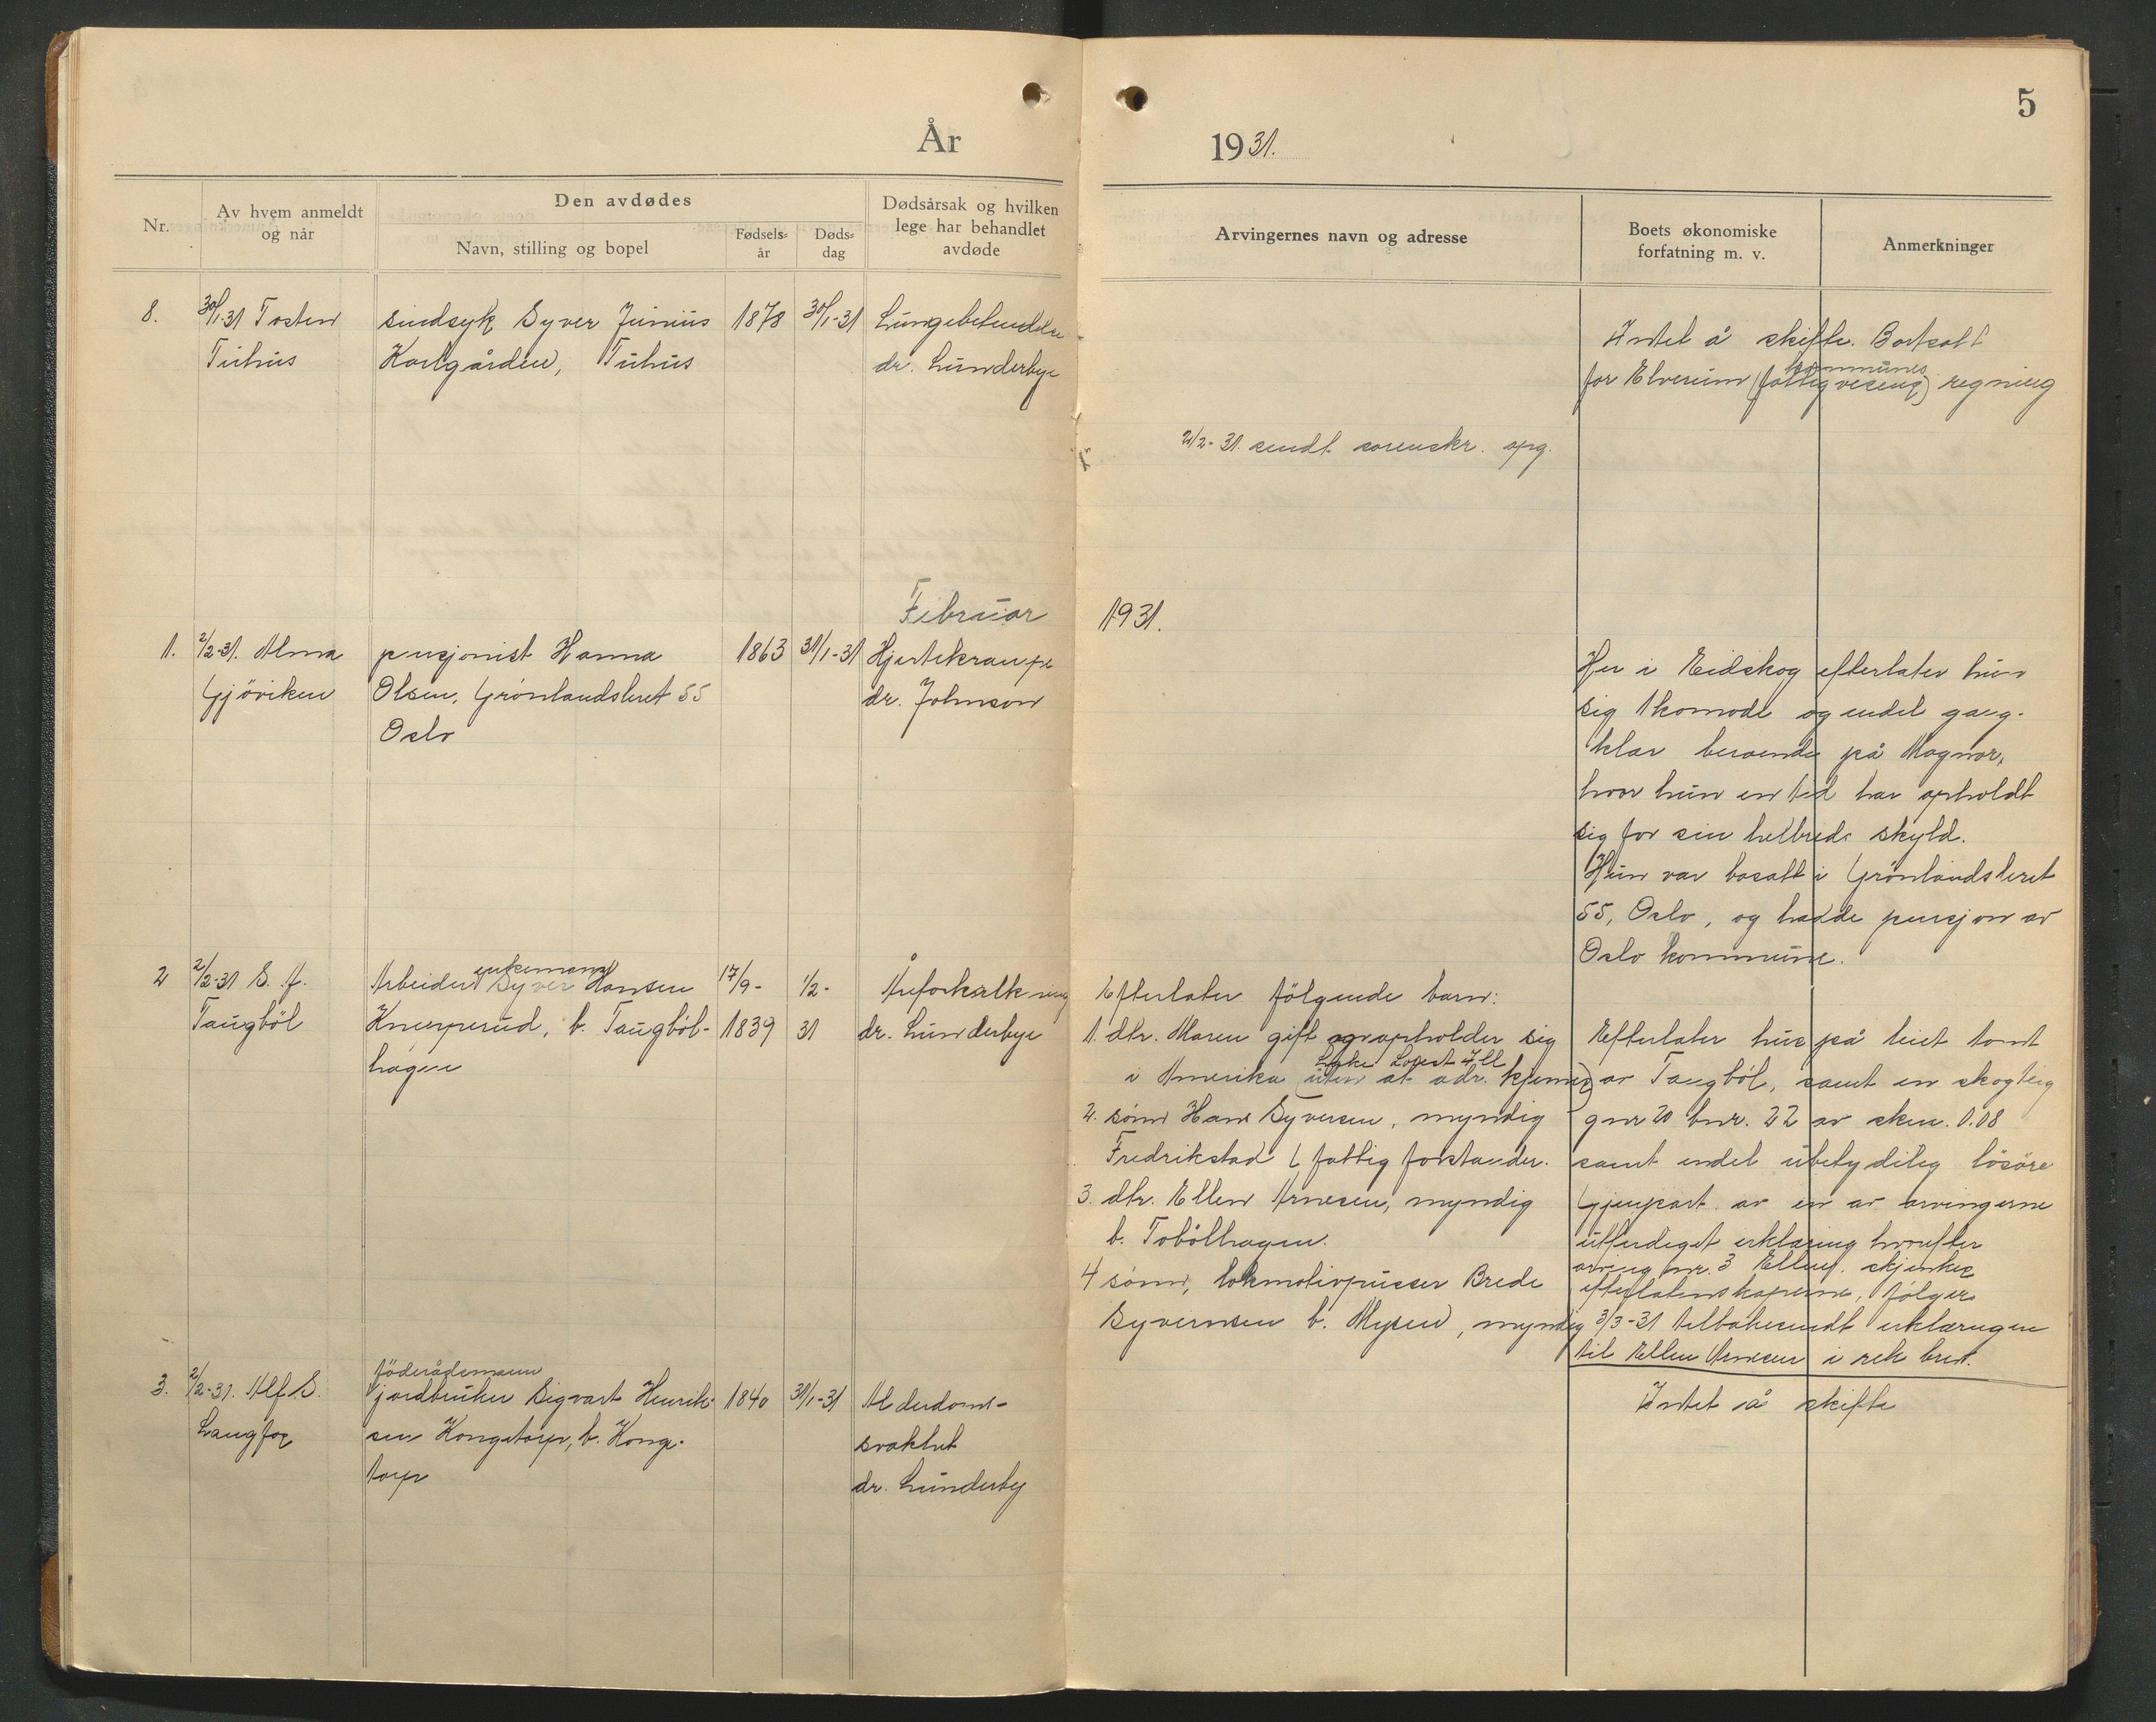 År
1931.
5
Nr.
Av hvem anmeldt
og når
Den avdødes
Navn, stilling og bopel
Fødsels-
år
Døds-
dag
Dødsårsak og hvilken
lege har behandlet
avdøde
Arvingernes navn og adresse
Boets økonomiske
forfatning m. v.
Anmerkninger
8.
30/1-31 Tosten
Tuhus
sindsyk Syver Junius
Karlgården, Tuhus
1878
30/1-31
Lungebetendelse
dr. Lunderbye
2/2-31. sendt sorenskr. opg.
Intet å skifte. Bortsatt
kommunes
for Elverum (fattigvesens) regning
Februar
1931.
1.
2/2-31. Alma
Gjöviken
pensjonist Hanna
Olsen, Grönlandsleret 55
Oslo
1863
31/1-31
Hjertekrampe
dr. Johnson
Her i Eidskog efterlater hun
sig 1 komode og endel gang-
klær beroende på Magnor,
hvor hun en tid har opholdt
sig for sin helbreds skyld.
Hun var bosatt i Grönlandsleret
55, Oslo, og hadde pensjon av
Oslo kommune.
2
2/2-31 S. J.
Taugböl
enkemann
Arbeider Syver Hansen
Knerperud, b. Taugböl-
hagen
17/9-
1839
1/2-
31
Åreforkalkning
dr. Lunderbye
Efterlater fölgende barn:
1. dtr. Maren gift og opholder sig
Lake Forest Ill
i Amerika (uten at adr. kjennes)
2. sönn Hans Syversen, myndig
Fredrikstad (fattigforstander.
3. dtr. Ellen Arnesen, myndig
b. Toböllhagen.
4 sönn, lokmotivpusser Brede
Syvernsen b. Mysen, myndig
Efterlater hus på leiet tomt
av Taugböl, samt en skogteig
gnr 20 bnr. 22 av sken. 0.08
samt endel ubetydelig lösöre
Gjenpart av en av arvingerne
utferdiget erklæring hvorefter
arving nr. 3 Ellen. skjenkes
efterlatenskapene, fölger.
3/3-31 tilbakesendt erklæringen
til Ellen Arnesen i rek brev.
3.
2/2-31. Alf S.
Langfoss
föderådsmann
jordbruker Sigvart Henrik-
sen Kongstorp, b. Kongs-
torp
1840
31/1-31
Alderdoms-
svakhet
dr. Lunderby
Intet å skifte